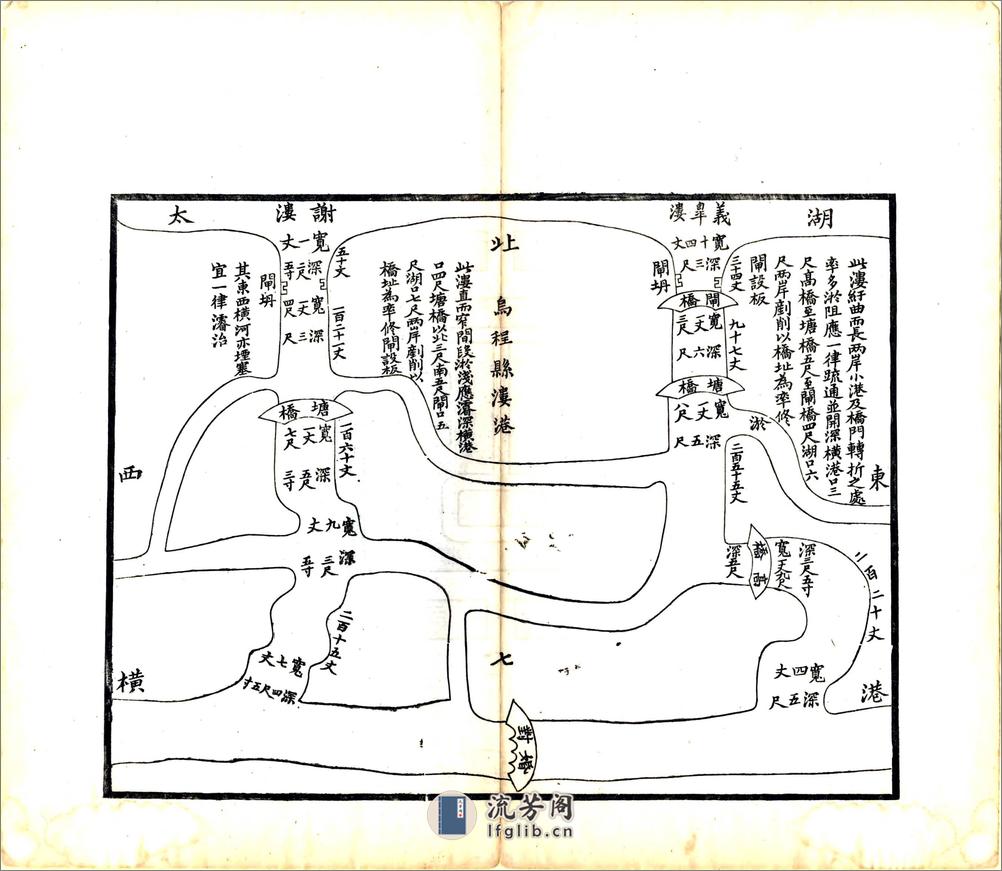 湖
太
義皐漊
寬十四丈
深三尺
三十四丈
閘坍
閘橋
寬一丈三尺
深六尺
九十七丈
塘橋
寬一丈八尺
深五尺
淤
二百五十五丈
此漊紆曲而長兩岸小港及橋門轉折之處
率多淤阻應一律疏通並開深橫港口三
尺高橋至塘橋五尺至閘橋四尺湖口六
尺兩岸剷削以橋址為率修
閘設板
東
高橋
深五尺
深三尺五寸
二百二十丈
寬四丈
深五尺
港
北
烏程縣漊港
七
此漊直而窄間段淤淺應濬深橫港
口四尺塘橋以北三尺南五尺閘口五
尺湖口七尺兩岸剷削以
橋址為率修閘設板
謝漊
寬一丈
深二尺五寸
五十丈
閘坍
寬一丈四尺
深三尺
一百二十一丈
其東西橫河亦堙塞
宜一律濬治
塘橋
寬一丈七尺
深五尺三寸
一百六十丈
西
寬九丈
深三尺五寸
二百十五丈
寬七丈
深四尺五寸
橫
流芳阁
lfglib.cn